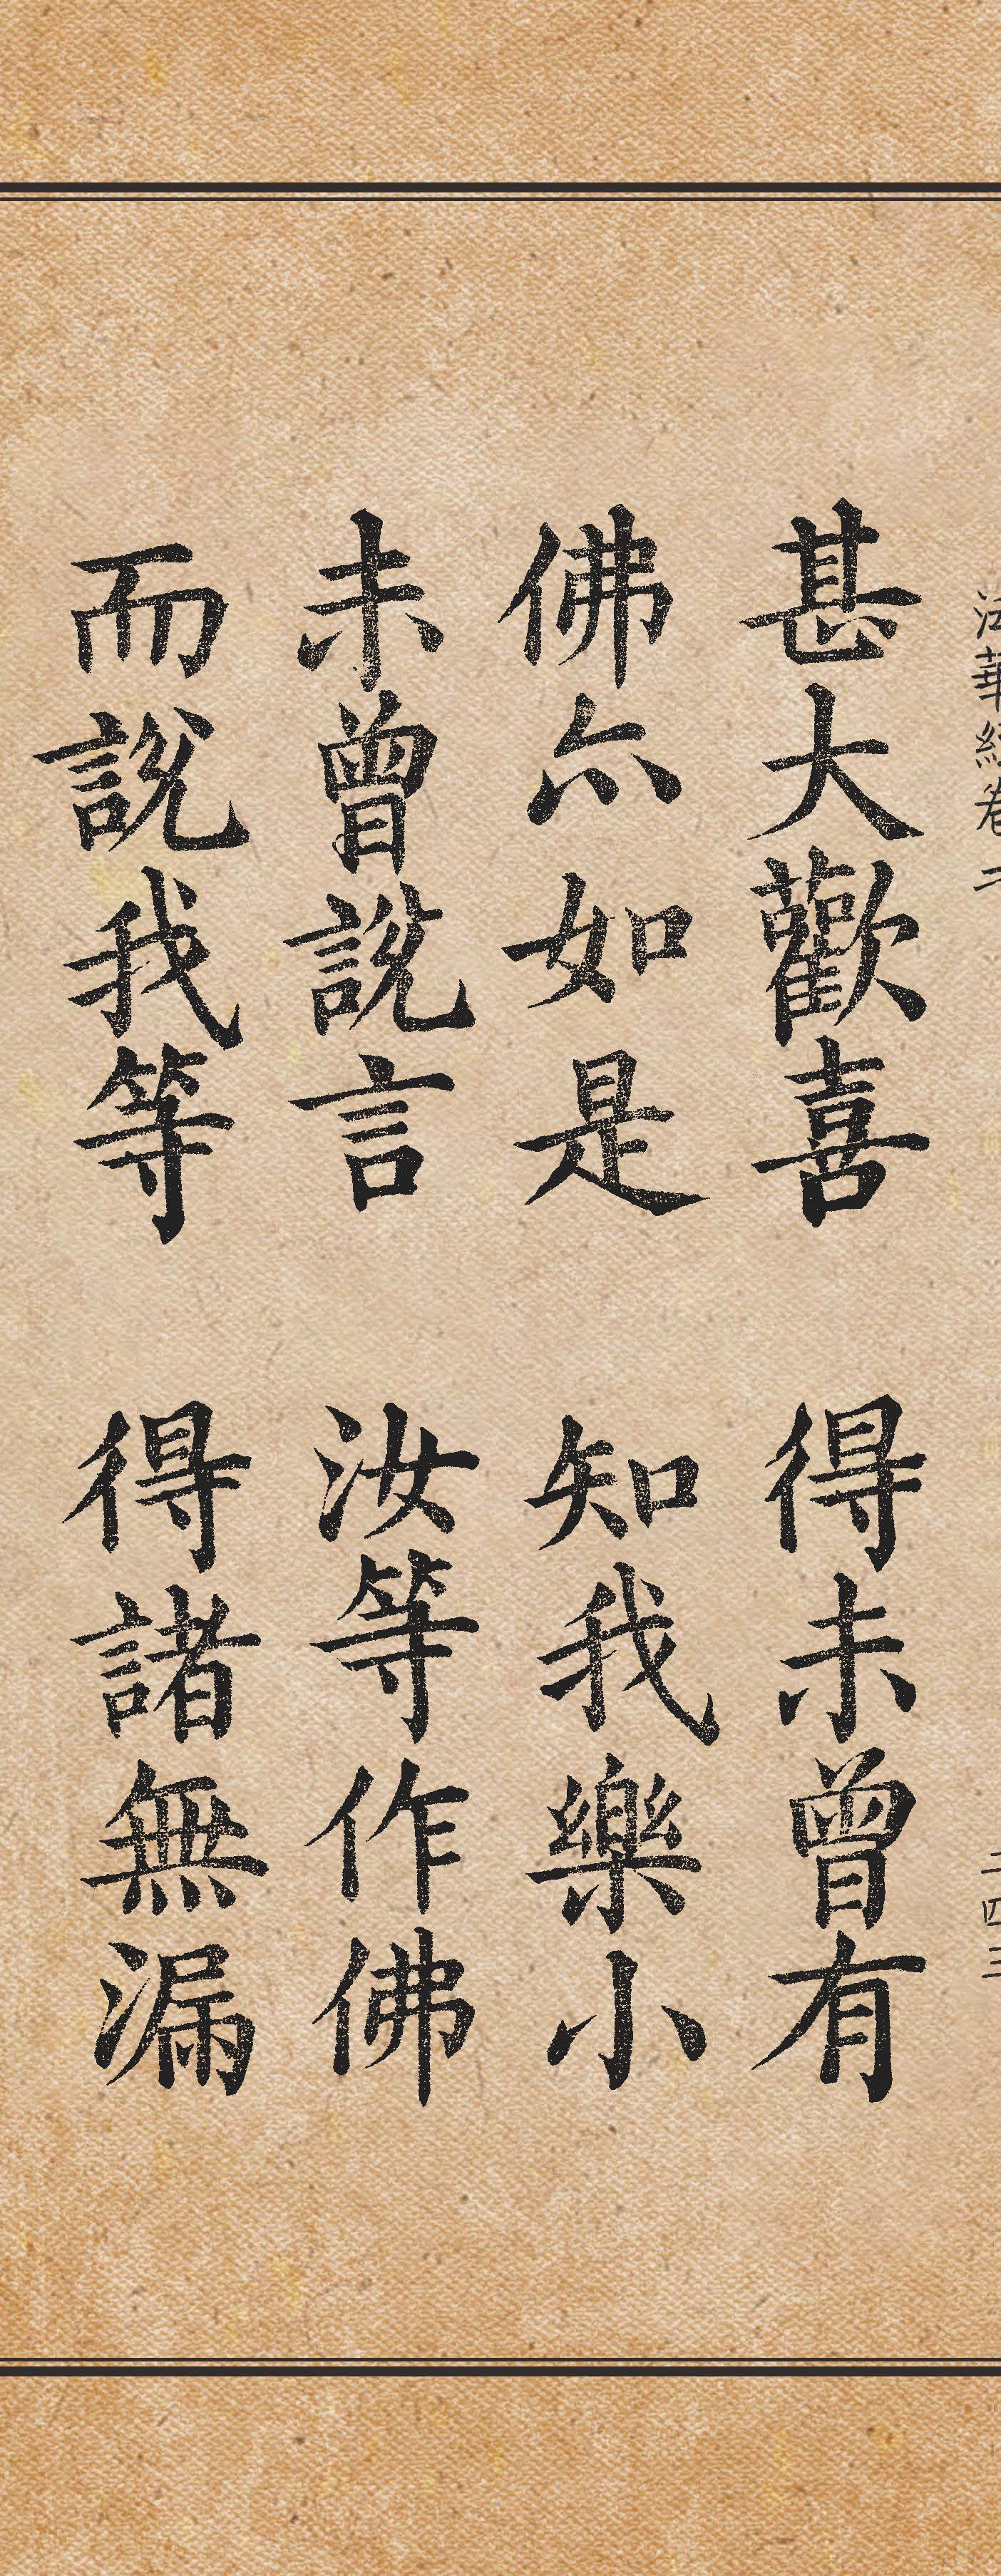 法華經卷二
甚大歡喜 得未曾有
佛亦如是 知我樂小
未曾說言 汝等作佛
而說我等 得諸無漏